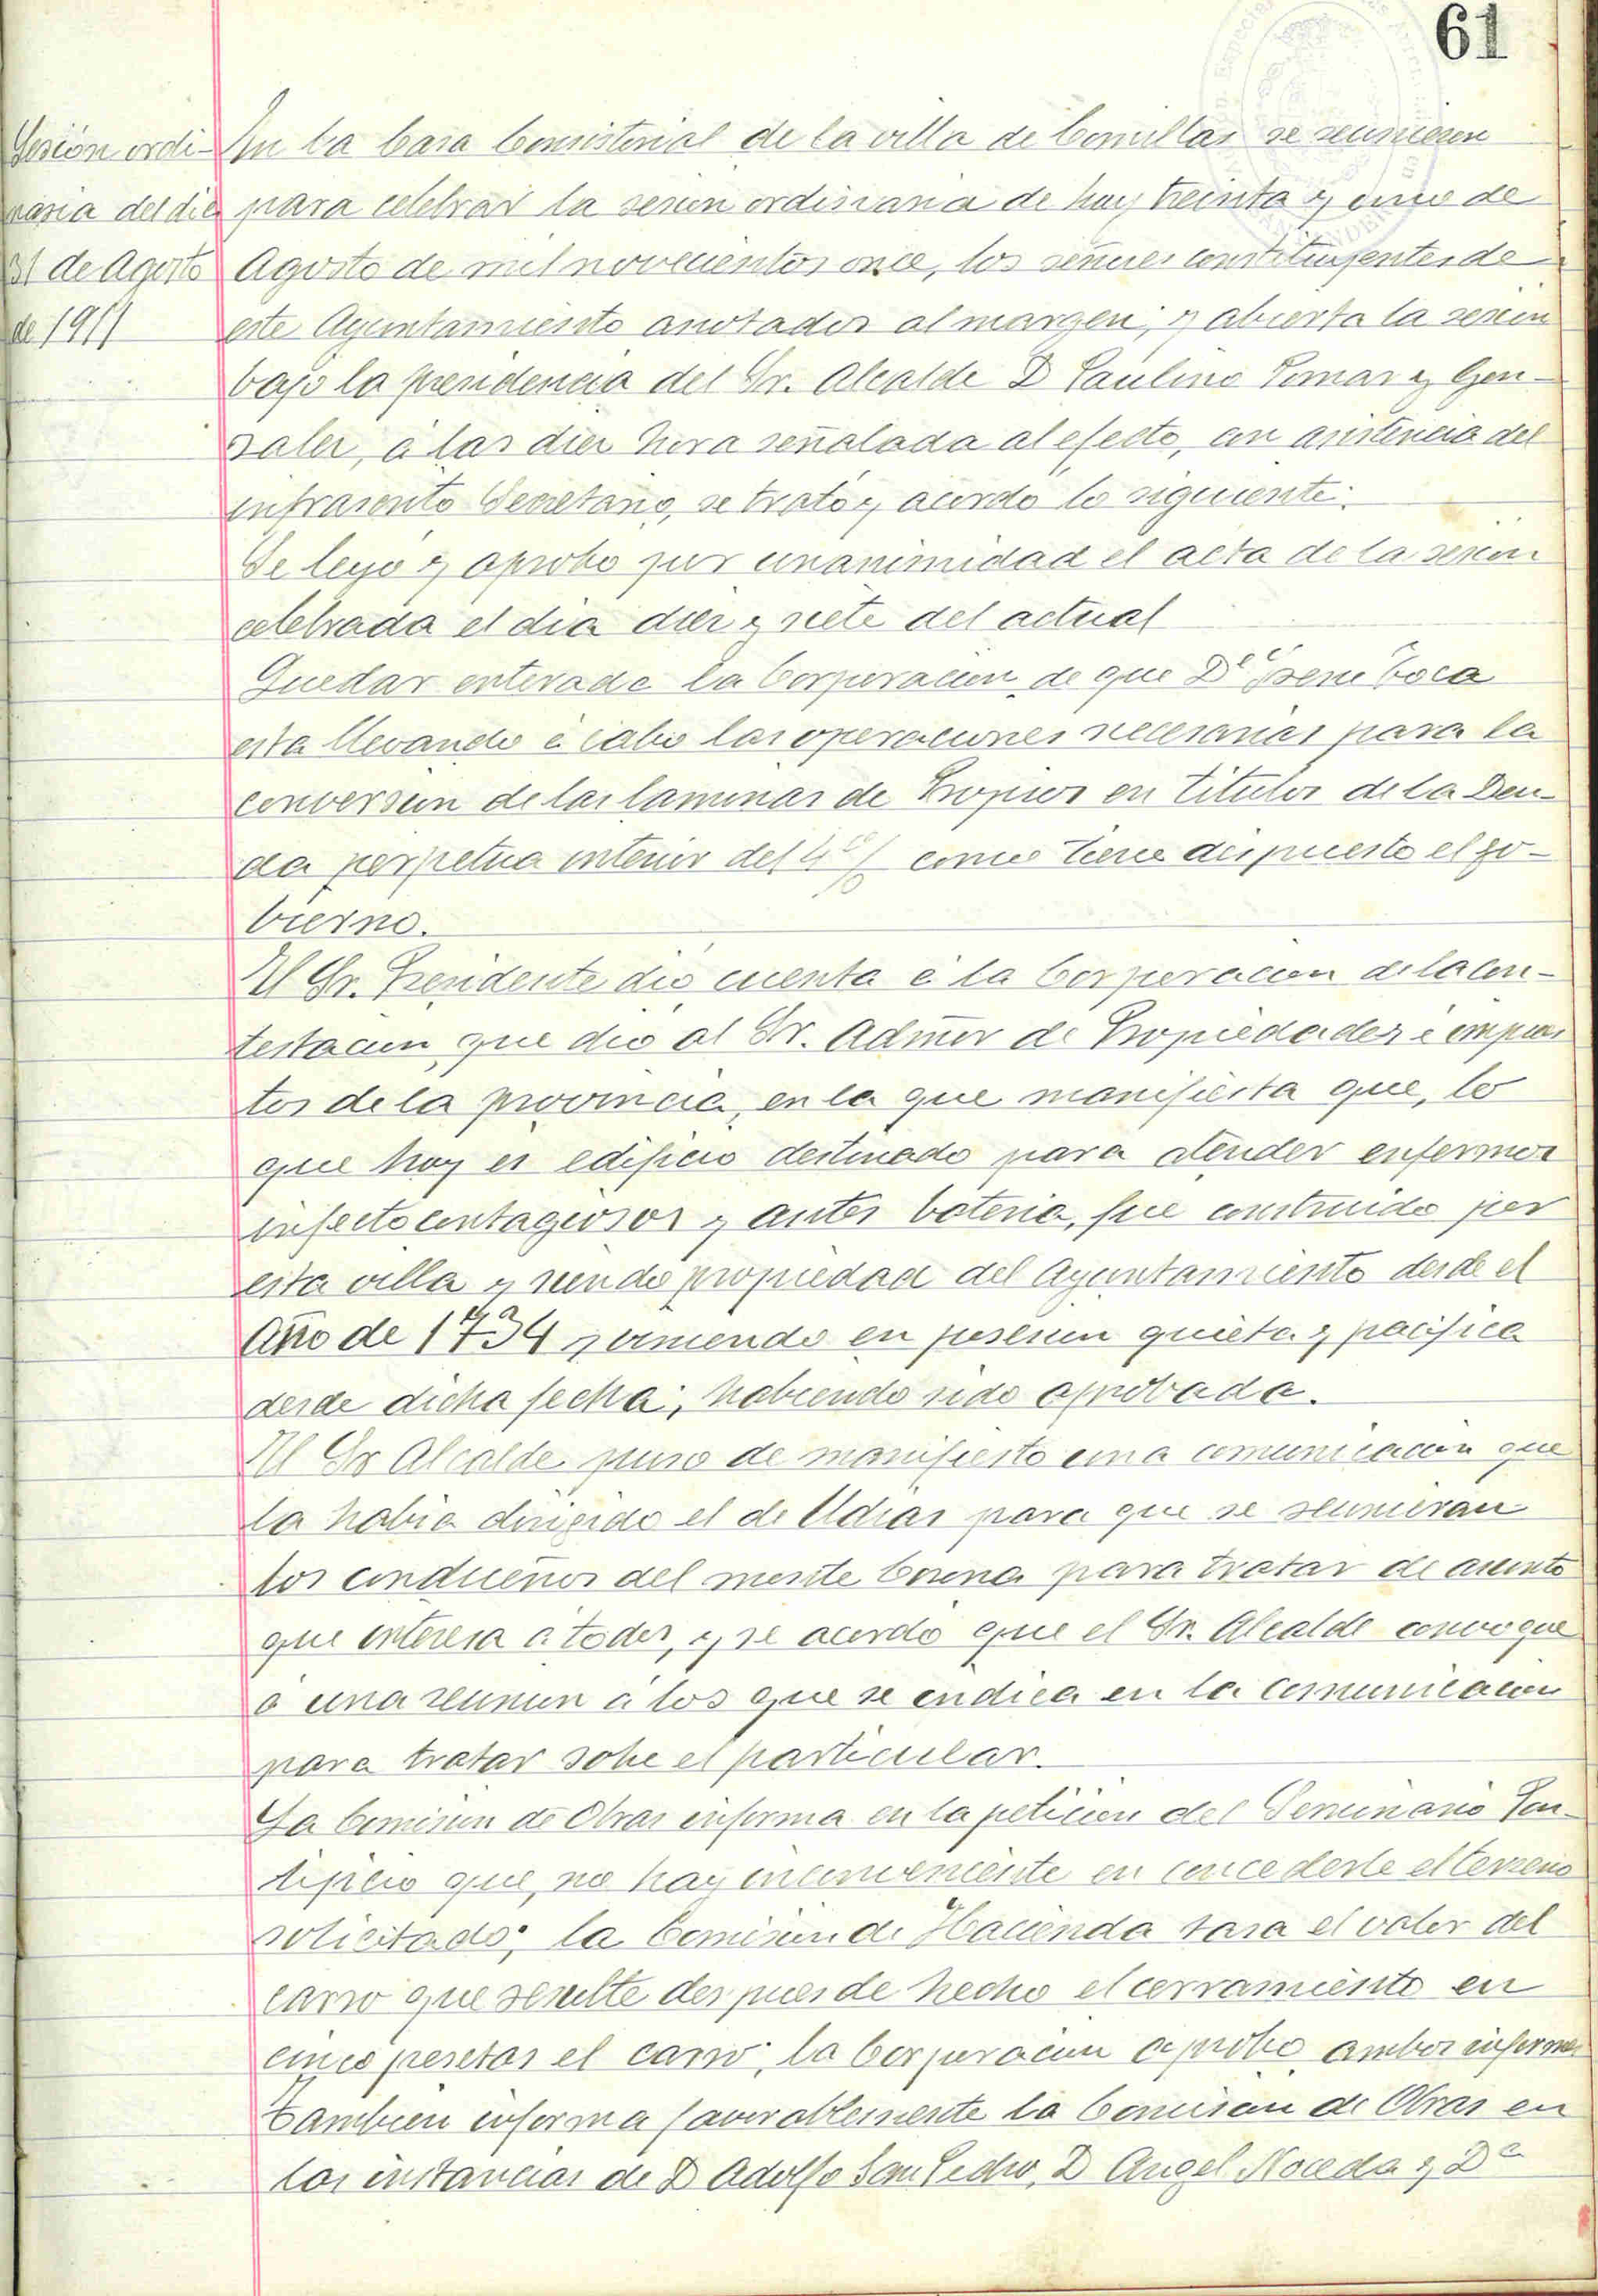 61
Sesión ordi-
naria del dia
31 de Agosto
de 1911
En la Casa Consistorial de la villa de Comillas se reunieron
para celebrar la sesion ordinaria de hoy treinta y uno de
Agosto de mil novecientos once, los señores constituyentes de
este Ayuntamiento anotados al margen; y abierta la sesion
bajo la presidencia del Sr. Alcalde D Paulino Pomar y Gon-
zalez, á las diez hora señalada al efecto, con asistencia del
infrascrito Secretario, se trató y acordó lo siguiente:
Se leyó y aprobo por unanimidad el acta de la sesion
celebrada el dia diez y siete del actual
Quedar enterada la Corporacion de que Dⁿ Toca
esta llevando á cabo las operaciones necesarias para la
conversion de las laminas de Propios en titulos de la Deu-
da perpetua interior del 4 % como tiene dispuesto el go-
bierno.
El Sr. Presidente dió cuenta á la Corporacion de la con-
testacion que dió al Sr. Admor de Propiedades é impues
tos de la provincia, en la que manifiesta que, lo
que hoy es edificio destinado para atender enfermos
infecto contagiosos y antes bateria, fue construido por
esta villa y siendo propiedad del Ayuntamiento desde el
Año de 1734 y viniendo en posesion quieta y pacifica
desde dicha fecha; habiendo sido aprobada.
El Sr Alcalde puso de manifiesto una comunicacion que
la habia dirigido el de Udias para que se reunieran
los condueños del monte Corona para tratar de asunto
que interesa á todos, y se acordó que el Sr. Alcalde convoque
á una reunion á los que se indica en la comunicacion
para tratar sobe el particular.
La Comision de Obras informa en la peticion del Seminario Pon-
tificio que, no hay inconveniente en concederle el terreno
solicitado; la Comision de Hacienda tasa el valor del
carro que resulte despues de hecho el cerramiento en
cinco pesetas el carro; la Corporacion aprobó ambos informes
Tambien informa favorablemente la Comision de Obras en
las instancias de D Adolfo San Pedro, D Angel Noceda y Dª